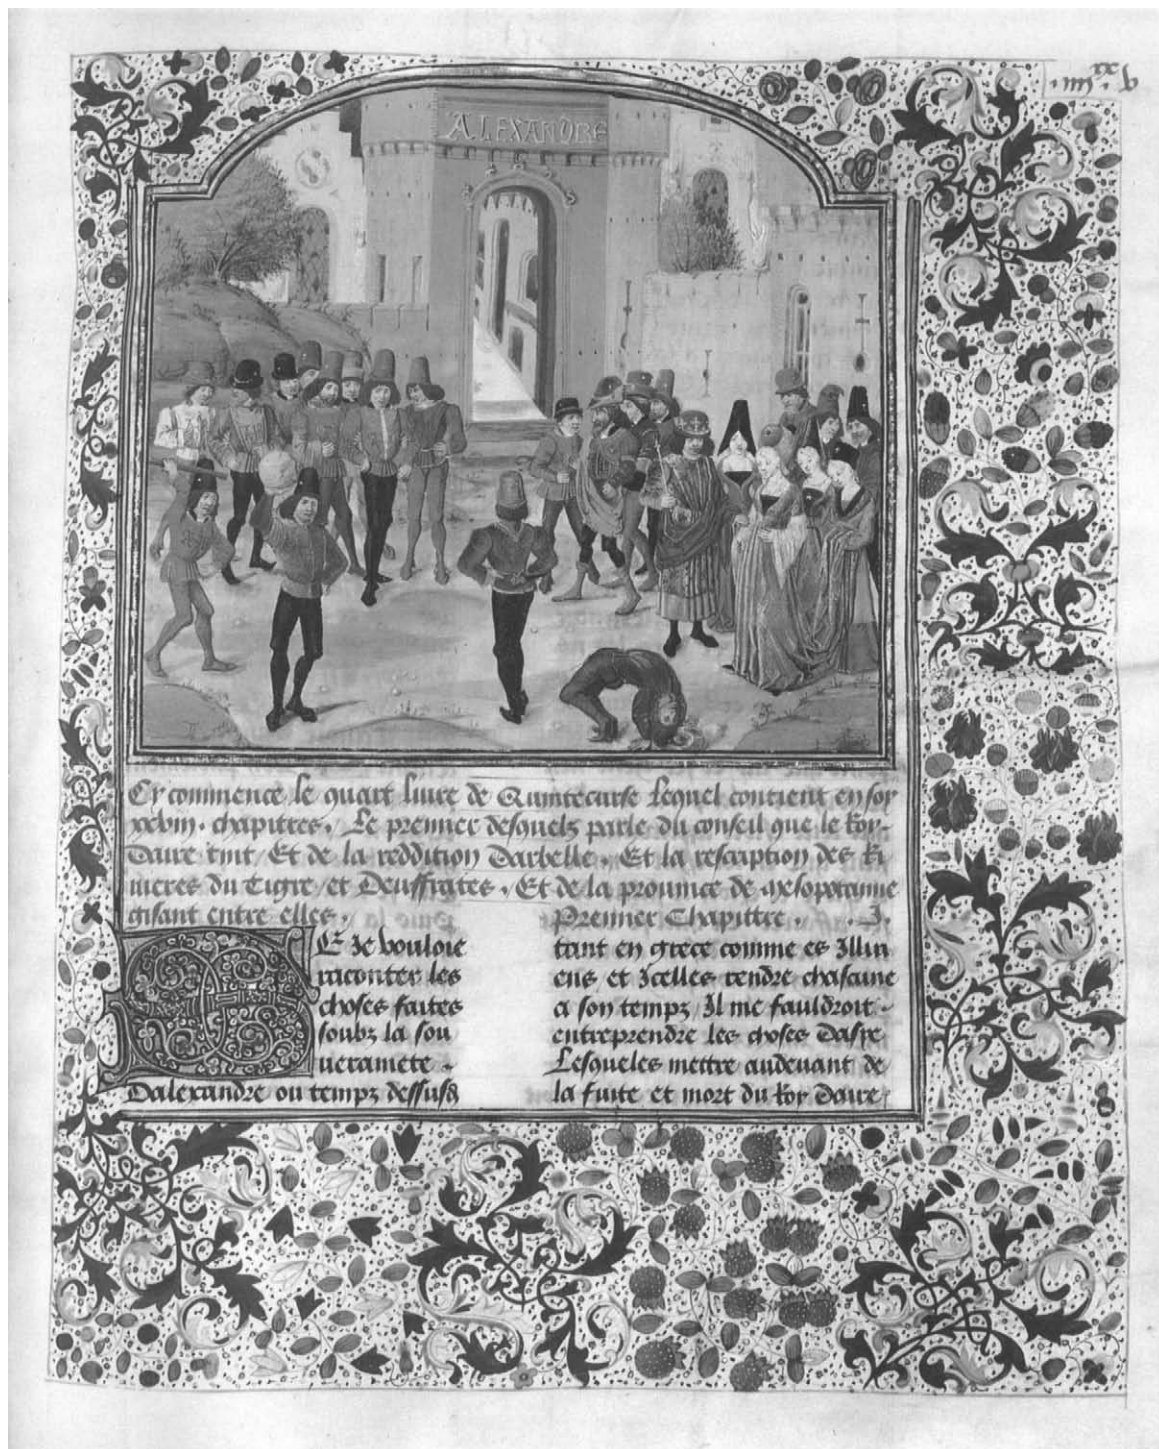 .iiii.xx v
ALEXANDRE
Cy commence le quart liure de Quintecurse lequel contient en soy
xxbiii. chapittres. Le premier desquelz parle du conseil que le Roy
daire tint / Et de la reddition darbelle. Et la rescription des Ri
uieres du Tigre / et Deuffrates. Et de la prouince de mesopotamie
gisant entre elles.
Premier Chapittre. .I.
SE Je vouloie
raconter les
choses faites
soubz la sou
uerainete
dalexandre ou temps dessusd
tant en grece comme es Illiri
ens et Icelles rendre chascune
a son temps / Il me fauldroit
entreprendre les choses dasye
Lesqueles mettre audeuant de
la fuite et mort du Roy daire /